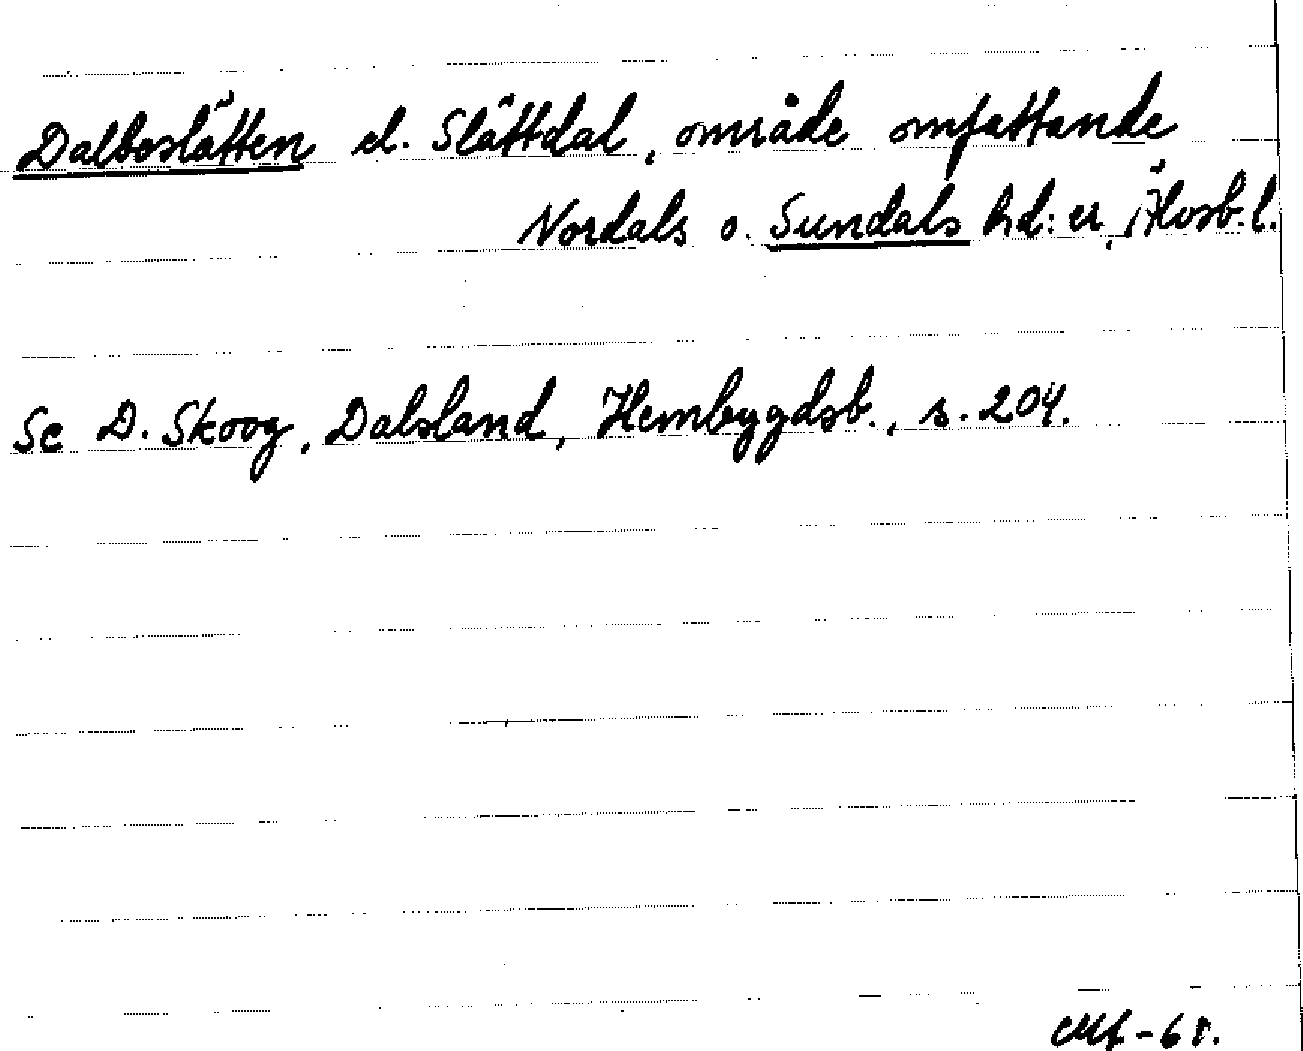 Dalboslätten el. Slättdal, område omfattande
Nordals o. Sundals hd:er, Älvsb. l.
Se D. Skoog, Dalsland, Hembygdsb., s. 204.